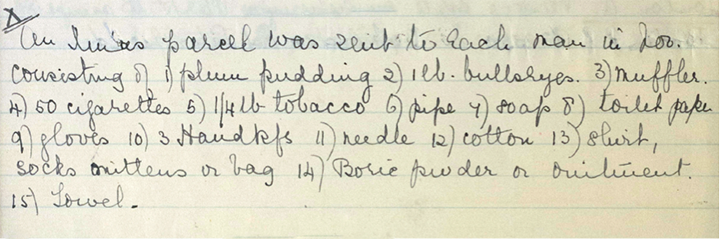 X
An Xmas parcel was sent to each man in Nov.
consisting of 1) plum pudding 2) 1 lb. bullseyes. 3) muffler.
4) 50 cigarettes 5) 1/4 lb tobacco 6) pipe 7) soap 8) toilet paper
9) gloves 10) 3 Handkfs 11) needle 12) cotton 13) shirt,
socks mittens or bag 14) Boric powder or ointment.
15) Towel.